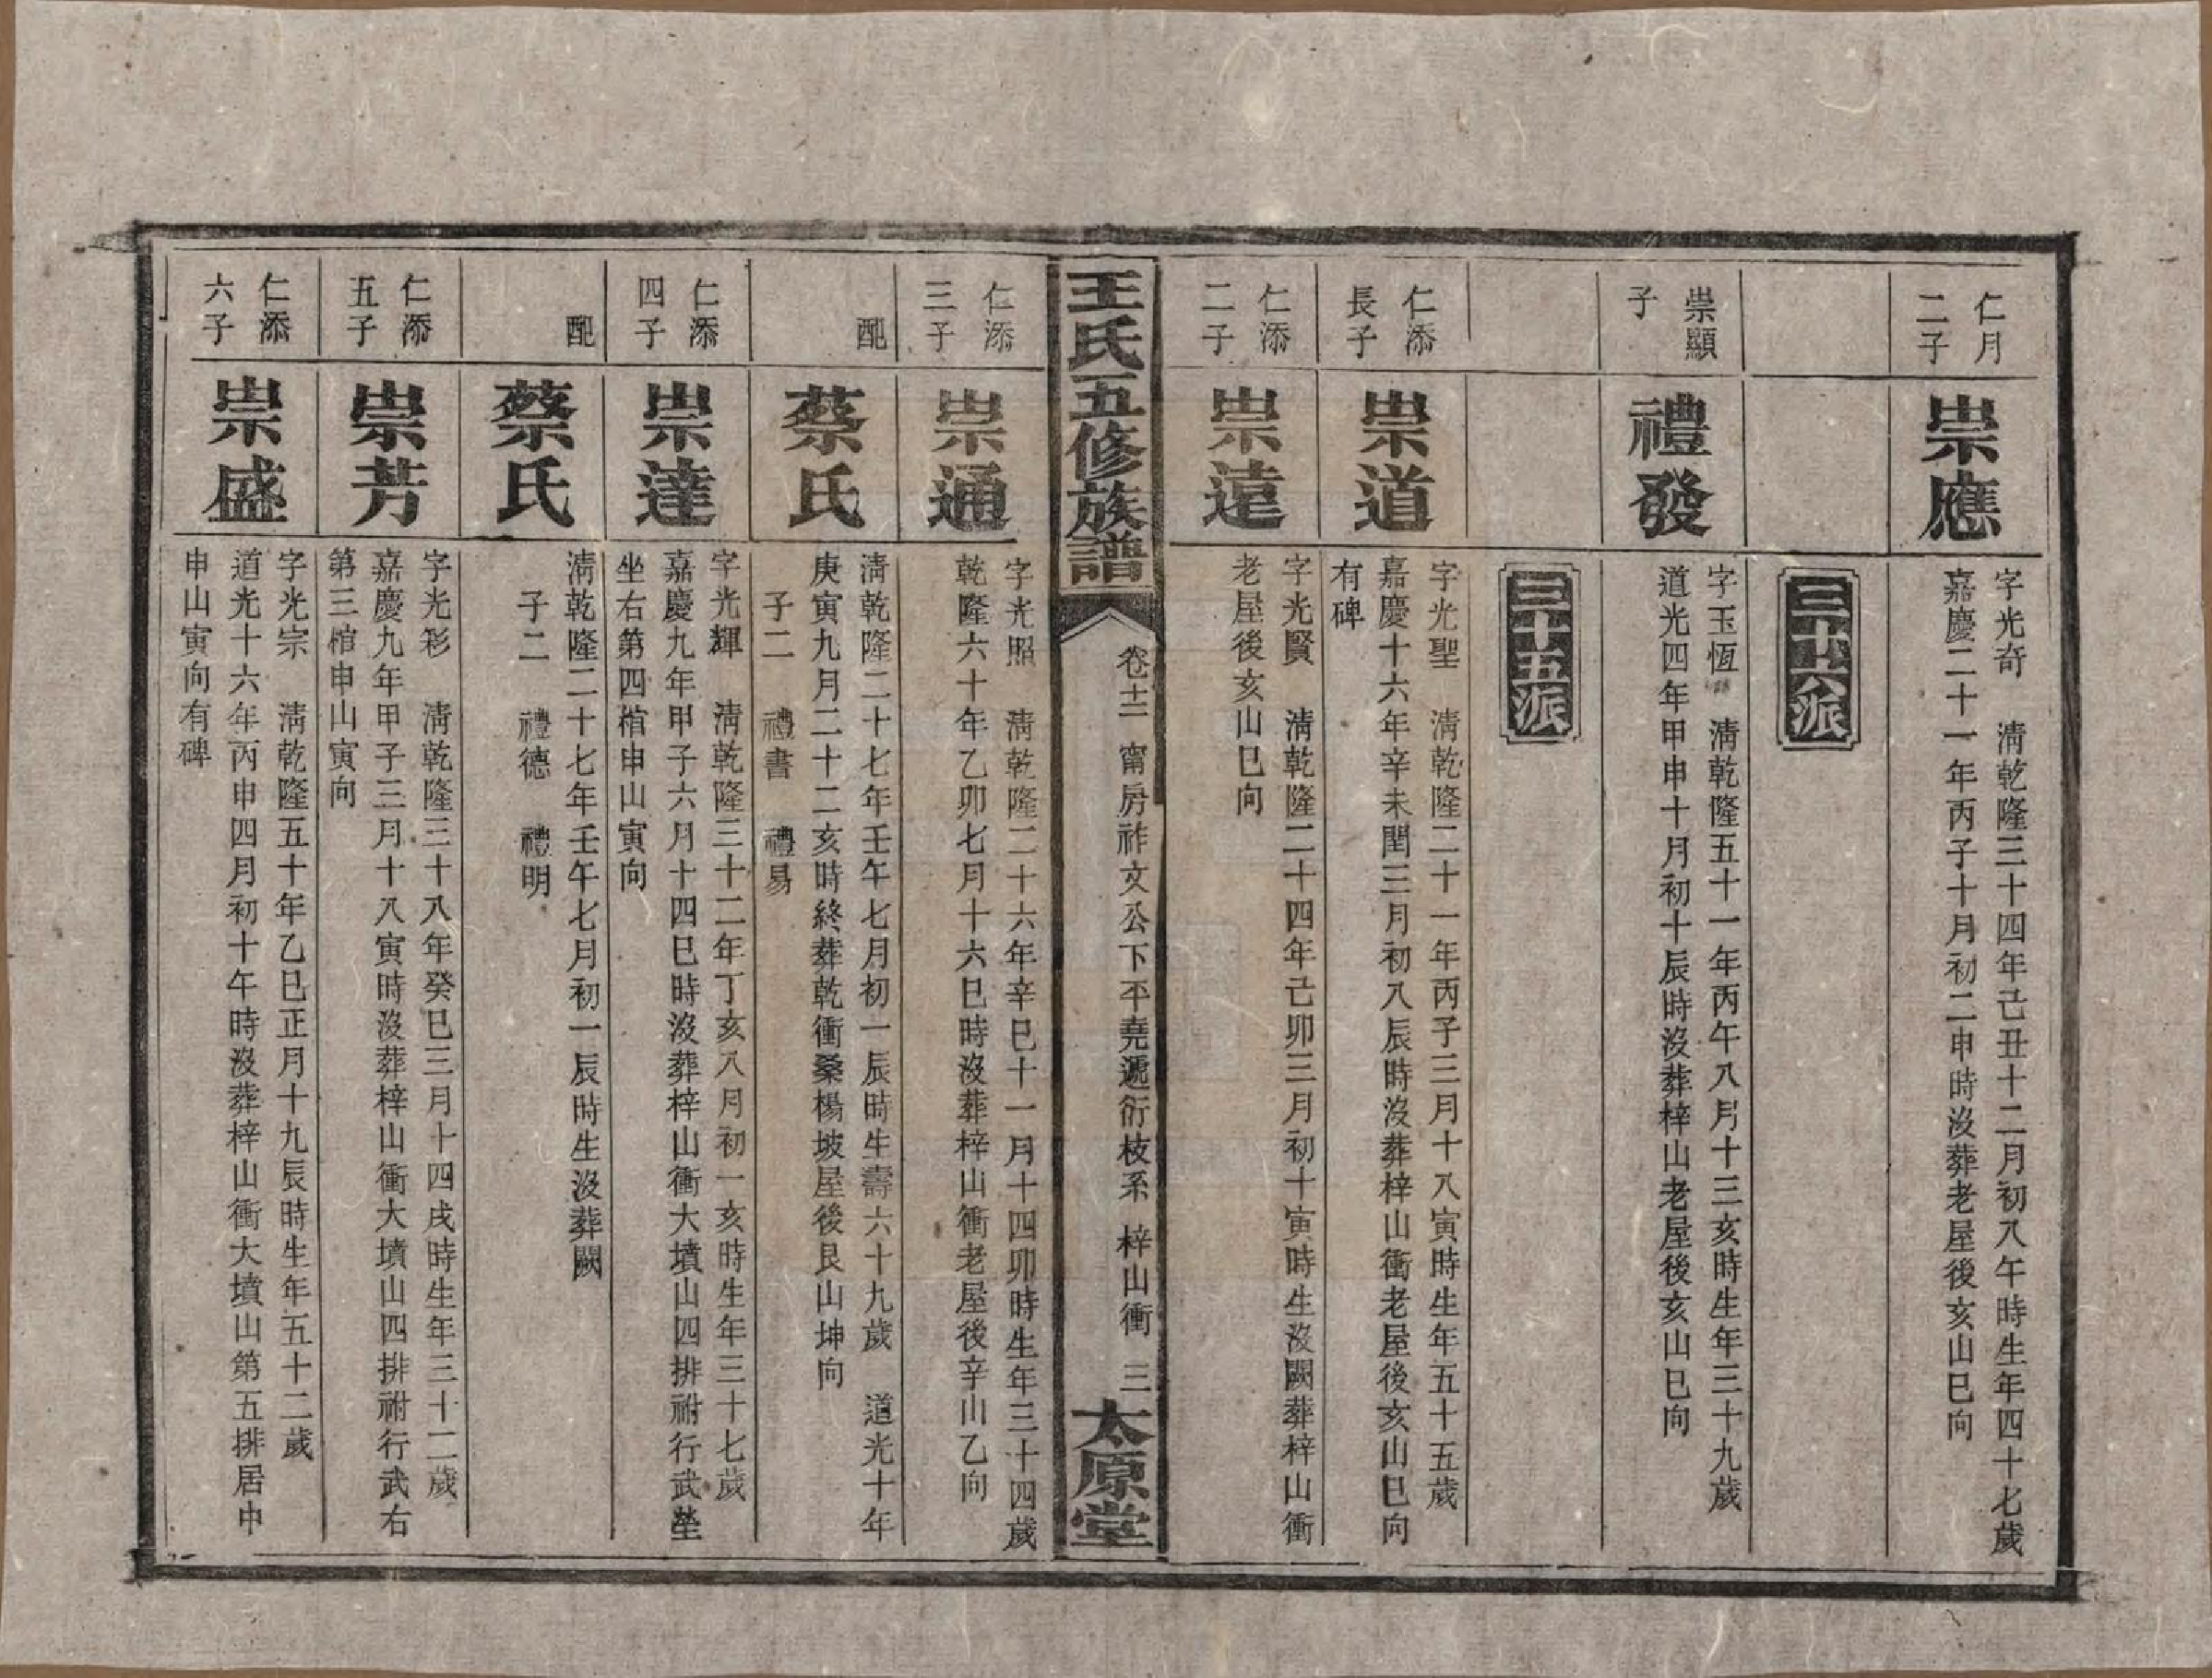 仁月
二子
崇應
字光奇　清乾隆三十四年己丑十二月初八午時生年四十七歲
嘉慶二十一年丙子十月初二申時沒葬老屋後亥山巳向
三十六派
崇顯
子
禮發
字玉恆　清乾隆五十一年丙午八月十三亥時生年三十九歲
道光四年甲申十月初十辰時沒葬梓山老屋後亥山巳向
三十五派
仁添
長子
崇道
字光聖　清乾隆二十一年丙子三月十八寅時生年五十五歲
嘉慶十六年辛未閏三月初八辰時沒葬梓山衝老屋後亥山巳向
有碑
仁添
二子
崇遠
字光賢　清乾隆二十四年己卯三月初十寅時生沒闕葬梓山衝
老屋後亥山巳向
王氏五修族譜
卷十二　甯房祚文公下平堯遞衍枝系　梓山衝　三
太原堂
仁添
三子
崇通
字光照　清乾隆二十六年辛巳十一月十四卯時生年三十四歲
乾隆六十年乙卯七月十六巳時沒葬梓山衝老屋後辛山乙向
配
蔡氏
清乾隆二十七年壬午七月初一辰時生壽六十九歲　道光十年
庚寅九月二十二亥時終葬乾衝桑楊坡屋後艮山坤向
子二　禮書　禮易
仁添
四子
崇達
字光輝　清乾隆三十二年丁亥八月初一亥時生年三十七歲
嘉慶九年甲子六月十四巳時沒葬梓山衝大墳山四排祔行武塋
坐右第四棺申山寅向
配
蔡氏
清乾隆二十七年壬午七月初一辰時生沒葬闕
子二　禮德　禮明
仁添
五子
崇芳
字光彩　清乾隆三十八年癸巳三月十四戌時生年三十二歲
嘉慶九年甲子三月十八寅時沒葬梓山衝大墳山四排祔行武右
第三棺申山寅向
仁添
六子
崇盛
字光宗　清乾隆五十年乙巳正月十九辰時生年五十二歲
道光十六年丙申四月初十午時沒葬梓山衝大墳山第五排居中
申山寅向有碑